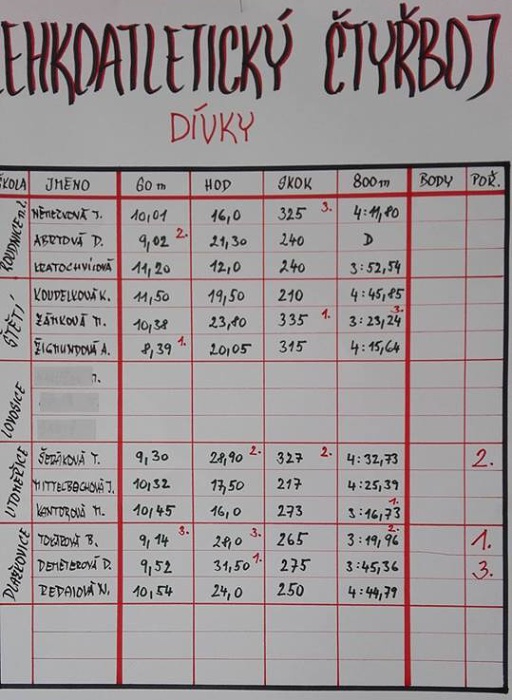 EHKOATLETICKÝ ČTYŘBOJ
DÍVKY
ŠKOLA JMÉNO 60 m HOD SKOK 800m BODY POŘ.
ROUDNICE n.L.
NĚMEČKOVÁ J. 10,01 16,0 325 3. 4:11,80
D. 9,02 2. 21,30 240 D
KRATOCHVÍLOVÁ 11,20 12,0 240 3:52,54
ŠTĚTÍ
KOUDELKOVÁ K. 11,50 19,50 210 4:45,85
ZÁMKOVÁ M. 10,38 23,80 335 1. 3:23,24 3.
ŽIGMUNDOVÁ A. 8,39 1. 20,05 315 4:15,64
LOVOSICE
LITOMĚŘICE
T. 9,30 28,90 2. 327 2. 4:32,73 2.
MITTELBACHOVÁ J. 10,32 17,50 217 4:25,39
KANTOROVÁ M. 10,45 16,0 273 3:16,73 1.
B. 9,14 3. 28,0 3. 265 3:19,96 2. 1.
DEMETEROVÁ D. 9,52 31,50 1. 275 3:45,36 3.
N. 10,54 24,0 250 4:44,79